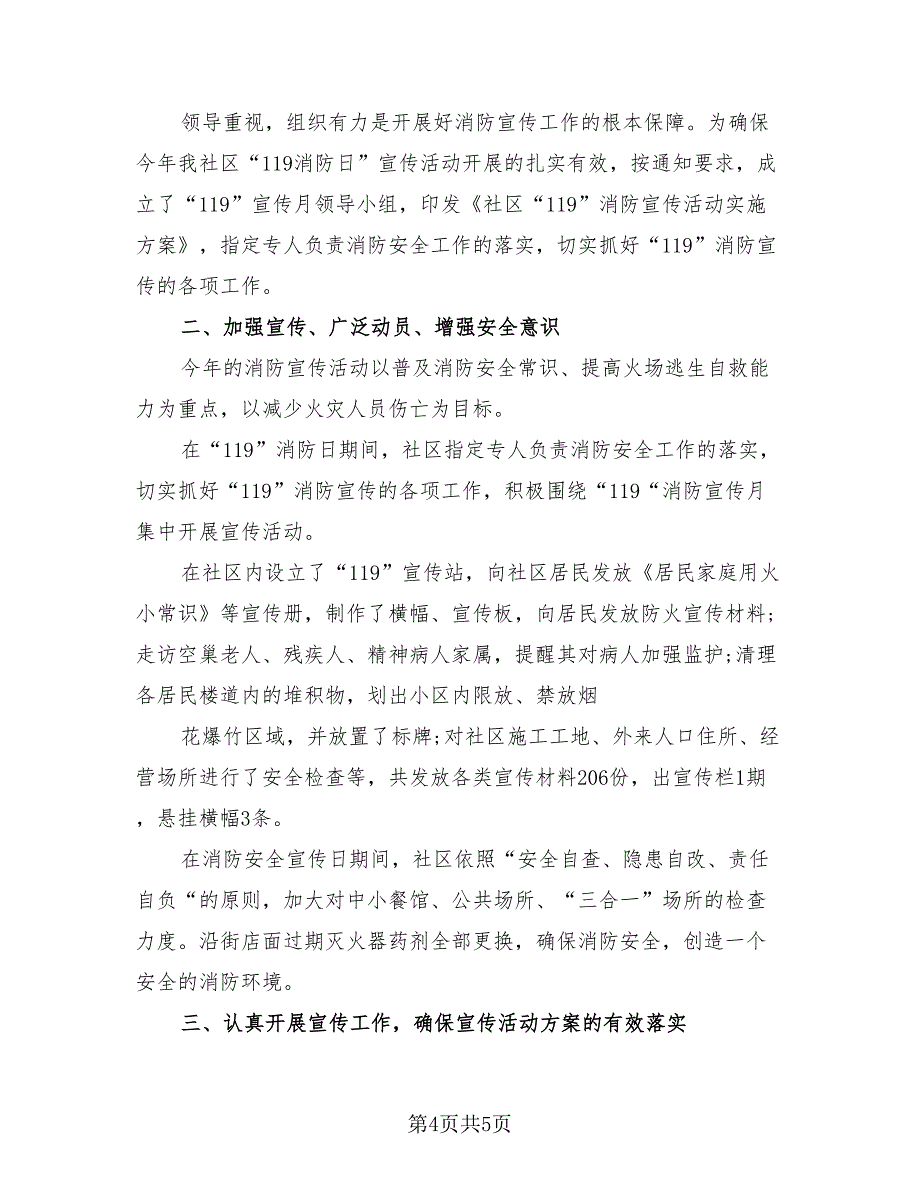 领导重视，组织有力是开展好消防宣传工作的根本保障。为确保
今年我社区“119消防日”宣传活动开展的扎实有效，按通知要求，成
立了“119”宣传月领导小组，印发《社区“119”消防宣传活动实施
方案》，指定专人负责消防安全工作的落实，切实抓好“119”消防宣
传的各项工作。
二、加强宣传、广泛动员、增强安全意识
今年的消防宣传活动以普及消防安全常识、提高火场逃生自救能
力为重点，以减少火灾人员伤亡为目标。
在“119”消防日期间，社区指定专人负责消防安全工作的落实，
切实抓好“119”消防宣传的各项工作，积极围绕“119“消防宣传月
集中开展宣传活动。
在社区内设立了“119”宣传站，向社区居民发放《居民家庭用火
小常识》等宣传册，制作了横幅、宣传板，向居民发放防火宣传材料;
走访空巢老人、残疾人、精神病人家属，提醒其对病人加强监护;清理
各居民楼道内的堆积物，划出小区内限放、禁放烟
花爆竹区域，并放置了标牌;对社区施工工地、外来人口住所、经
营场所进行了安全检查等，共发放各类宣传材料206份，出宣传栏1期
，悬挂横幅3条。
在消防安全宣传日期间，社区依照“安全自查、隐患自改、责任
自负“的原则，加大对中小餐馆、公共场所、“三合一”场所的检查
力度。沿街店面过期灭火器药剂全部更换，确保消防安全，创造一个
安全的消防环境。
三、认真开展宣传工作，确保宣传活动方案的有效落实
第4页共5页